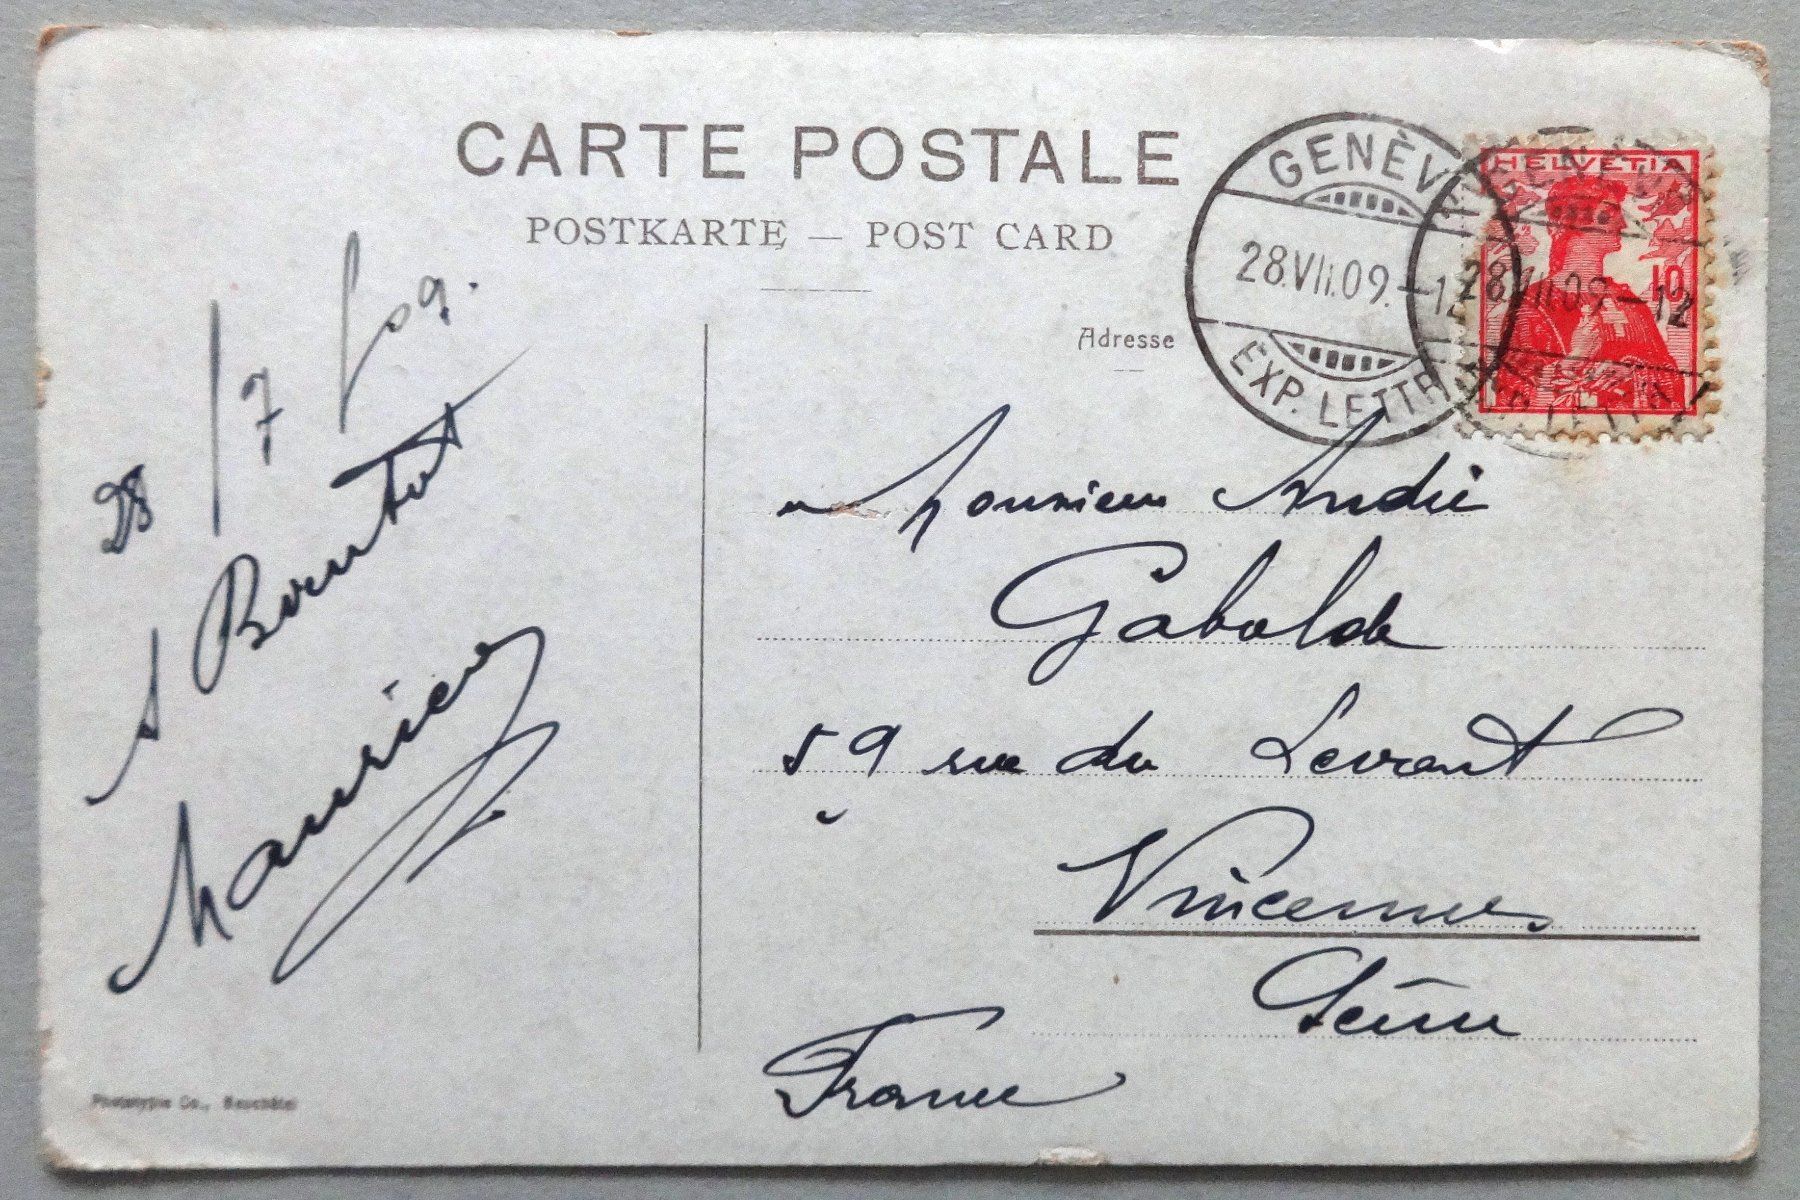 CARTE POSTALE
POSTKARTE — POST CARD
Adresse
GENÈVE
28.VII.09.–12
EXP. LETTR.
GENÈVE
28.VII.09–12
EXP. LETTR.
HELVETIA
10
28/7/09.
A Bientôt
Maurice
Monsieur André
Gabolde
59 rue du Levant
Vincennes
Seine
France
Phototypie Co., Neuchâtel